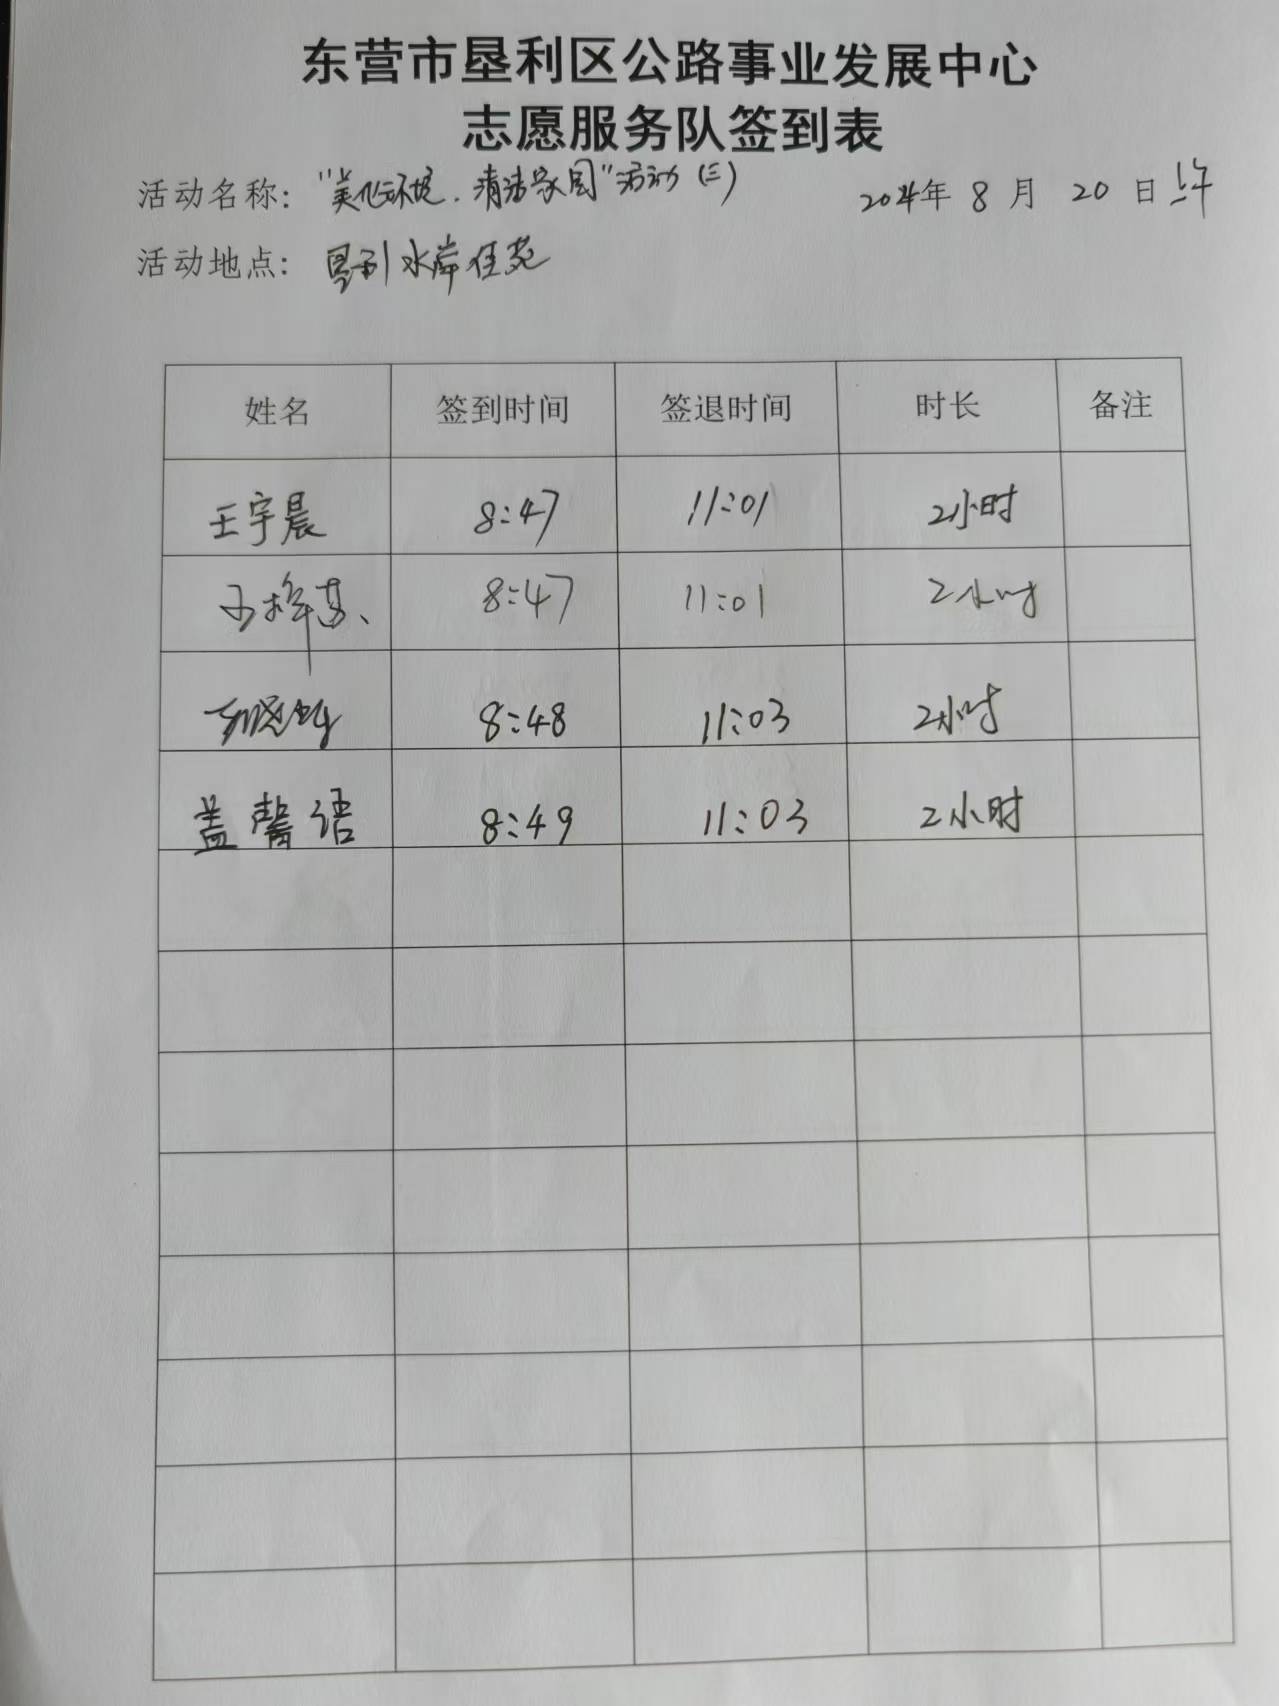 东营市垦利区公路事业发展中心
志愿服务队签到表
活动名称："美化环境.清洁家园"活动(三) 2024年 8 月 20 日 上午
活动地点：垦利水岸佳苑
姓名 签到时间 签退时间 时长 备注
王宇晨 8:47 11:01 2小时
8:47 11:01 2小时
8:48 11:03 2小时
盖馨语 8:49 11:03 2小时